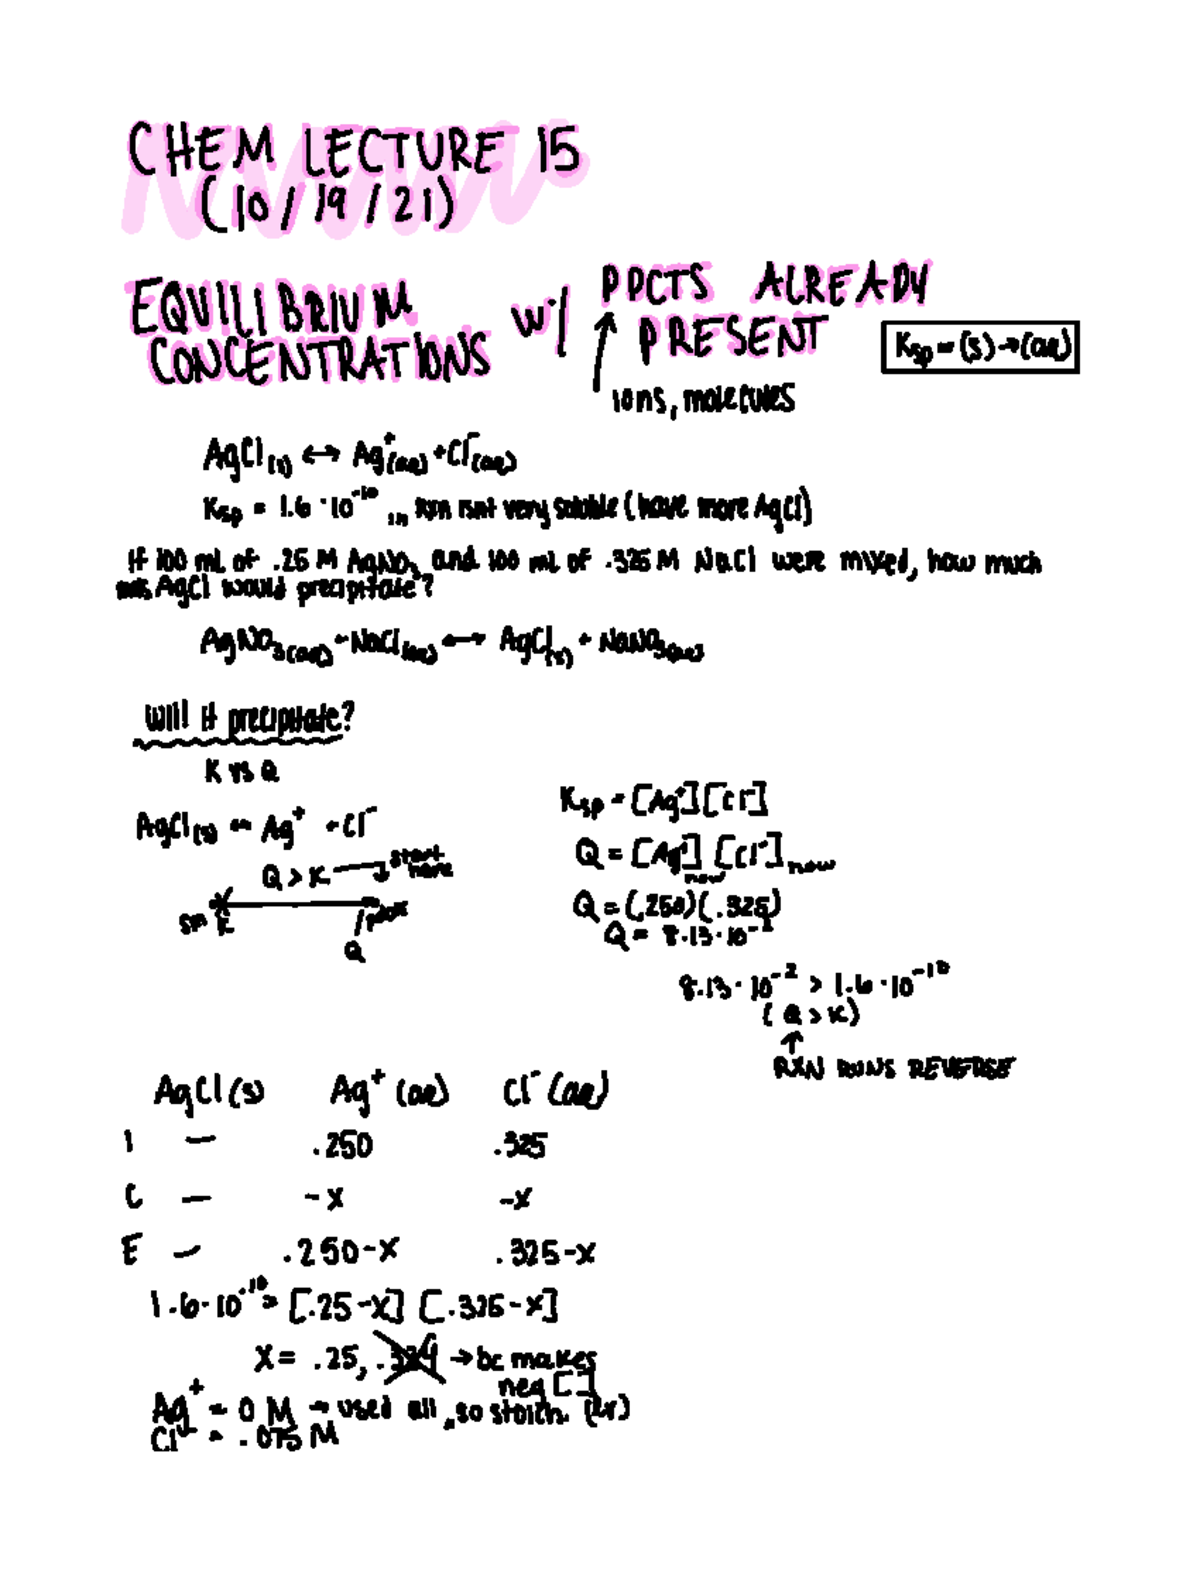 CHEM LECTURE 15
(10/19/21)
EQUILIBRIUM CONCENTRATIONS w/ PPCTS ALREADY PRESENT
ions, molecules
Ksp = (s) → (aq)
AgCl(s) ↔ Ag⁺(aq) + Cl⁻(aq)
Ksp = 1.6 · 10⁻¹⁰ ... rxn isnt very soluble (have more AgCl)
If 100 mL of .25 M AgNO₃ and 100 mL of .325 M NaCl were mixed, how much
AgCl would precipitate?
AgNO₃(aq) + NaCl(aq) ↔ AgCl(s) + NaNO₃(aq)
Will it precipitate?
K vs Q
AgCl(s) ↔ Ag⁺ + Cl⁻
Q > K → start here
K
Q
Ksp = [Ag⁺][Cl⁻]
Q = [Ag⁺]now [Cl⁻]now
Q = (.250)(.325)
Q = 8.13 · 10⁻²
8.13 · 10⁻² > 1.6 · 10⁻¹⁰
(Q > K)
↑
RXN RUNS REVERSE
AgCl(s) Ag⁺(aq) Cl⁻(aq)
I — .250 .325
C — -x -x
E — .250-x .325-x
1.6·10⁻¹⁰ = [.25-x] [.325-x]
x = .25, .324 → bc makes
neg [ ]
Ag⁺ = 0 M → used all, so stoich. (LR)
Cl⁻ = .075 M